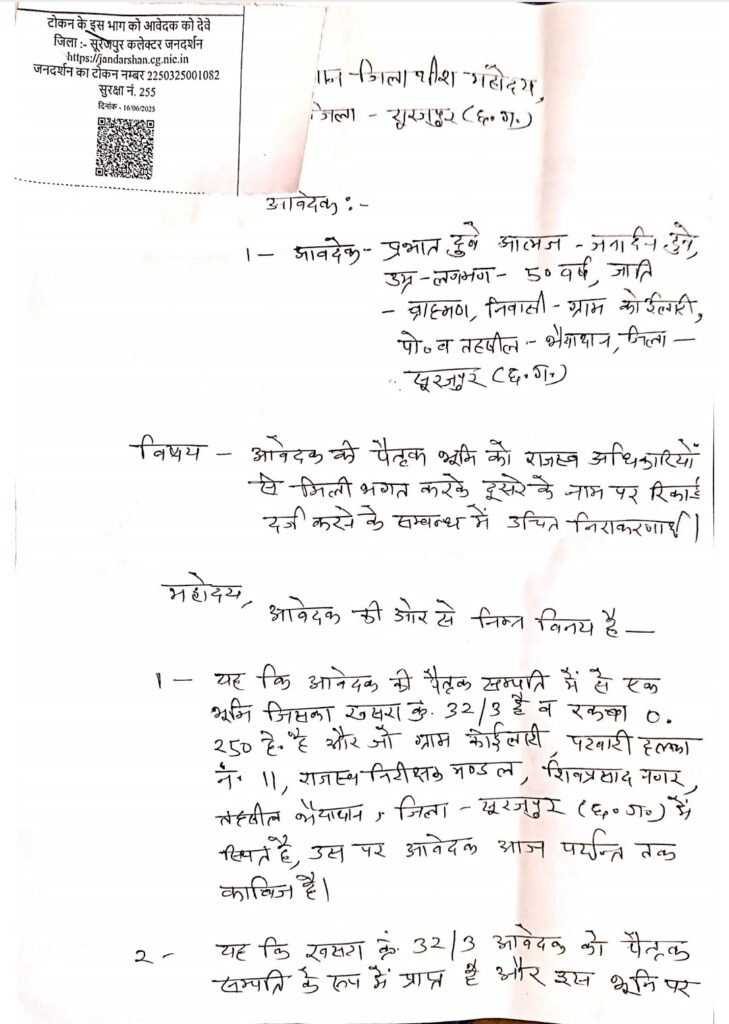 टोकन के इस भाग को आवेदक को देवे
जिला :- सूरजपुर कलेक्टर जनदर्शन
https://jandarshan.cg.nic.in
जनदर्शन का टोकन नम्बर 2250325001082
सुरक्षा नं. 255
दिनांक - 16/06/2025
जिलाधीश महोदय,
जिला - सूरजपुर (छ.ग.)
आवेदक :-
1 - आवदेक - प्रभात दुबे आत्मज - जनार्दन दुबे,
उम्र - लगभग - 50 वर्ष, जाति
- ब्राह्मण, निवासी - ग्राम कोईलारी,
पो० व तहसील - भैयाथान, जिला -
सूरजपुर (छ.ग.)
विषय - आवेदक की पैतृक भूमि को राजस्व अधिकारियों
से मिली भगत करके दूसरे के नाम पर रिकार्ड
दर्ज करने के सम्बन्ध में उचित निराकरणार्थ।
महोदय,
आवेदक की ओर से निम्न विनय है -
1 - यह कि आवेदक की पैतृक सम्पति में से एक
भूमि जिसका खसरा क्रं. 32/3 है व रकबा 0.
250 हे. है और जो ग्राम कोईलारी, पटवारी हल्का
नं. 11, राजस्व निरीक्षक मण्डल, शिवप्रसाद नगर,
तहसील भैयाथान, जिला - सूरजपुर (छ.ग.) में
स्थित है, उस पर आवेदक आज पर्यन्त तक
काबिज है।
2 - यह कि खसरा क्रं. 32/3 आवेदक को पैतृक
सम्पति के रूप में प्राप्त है और इस भूमि पर